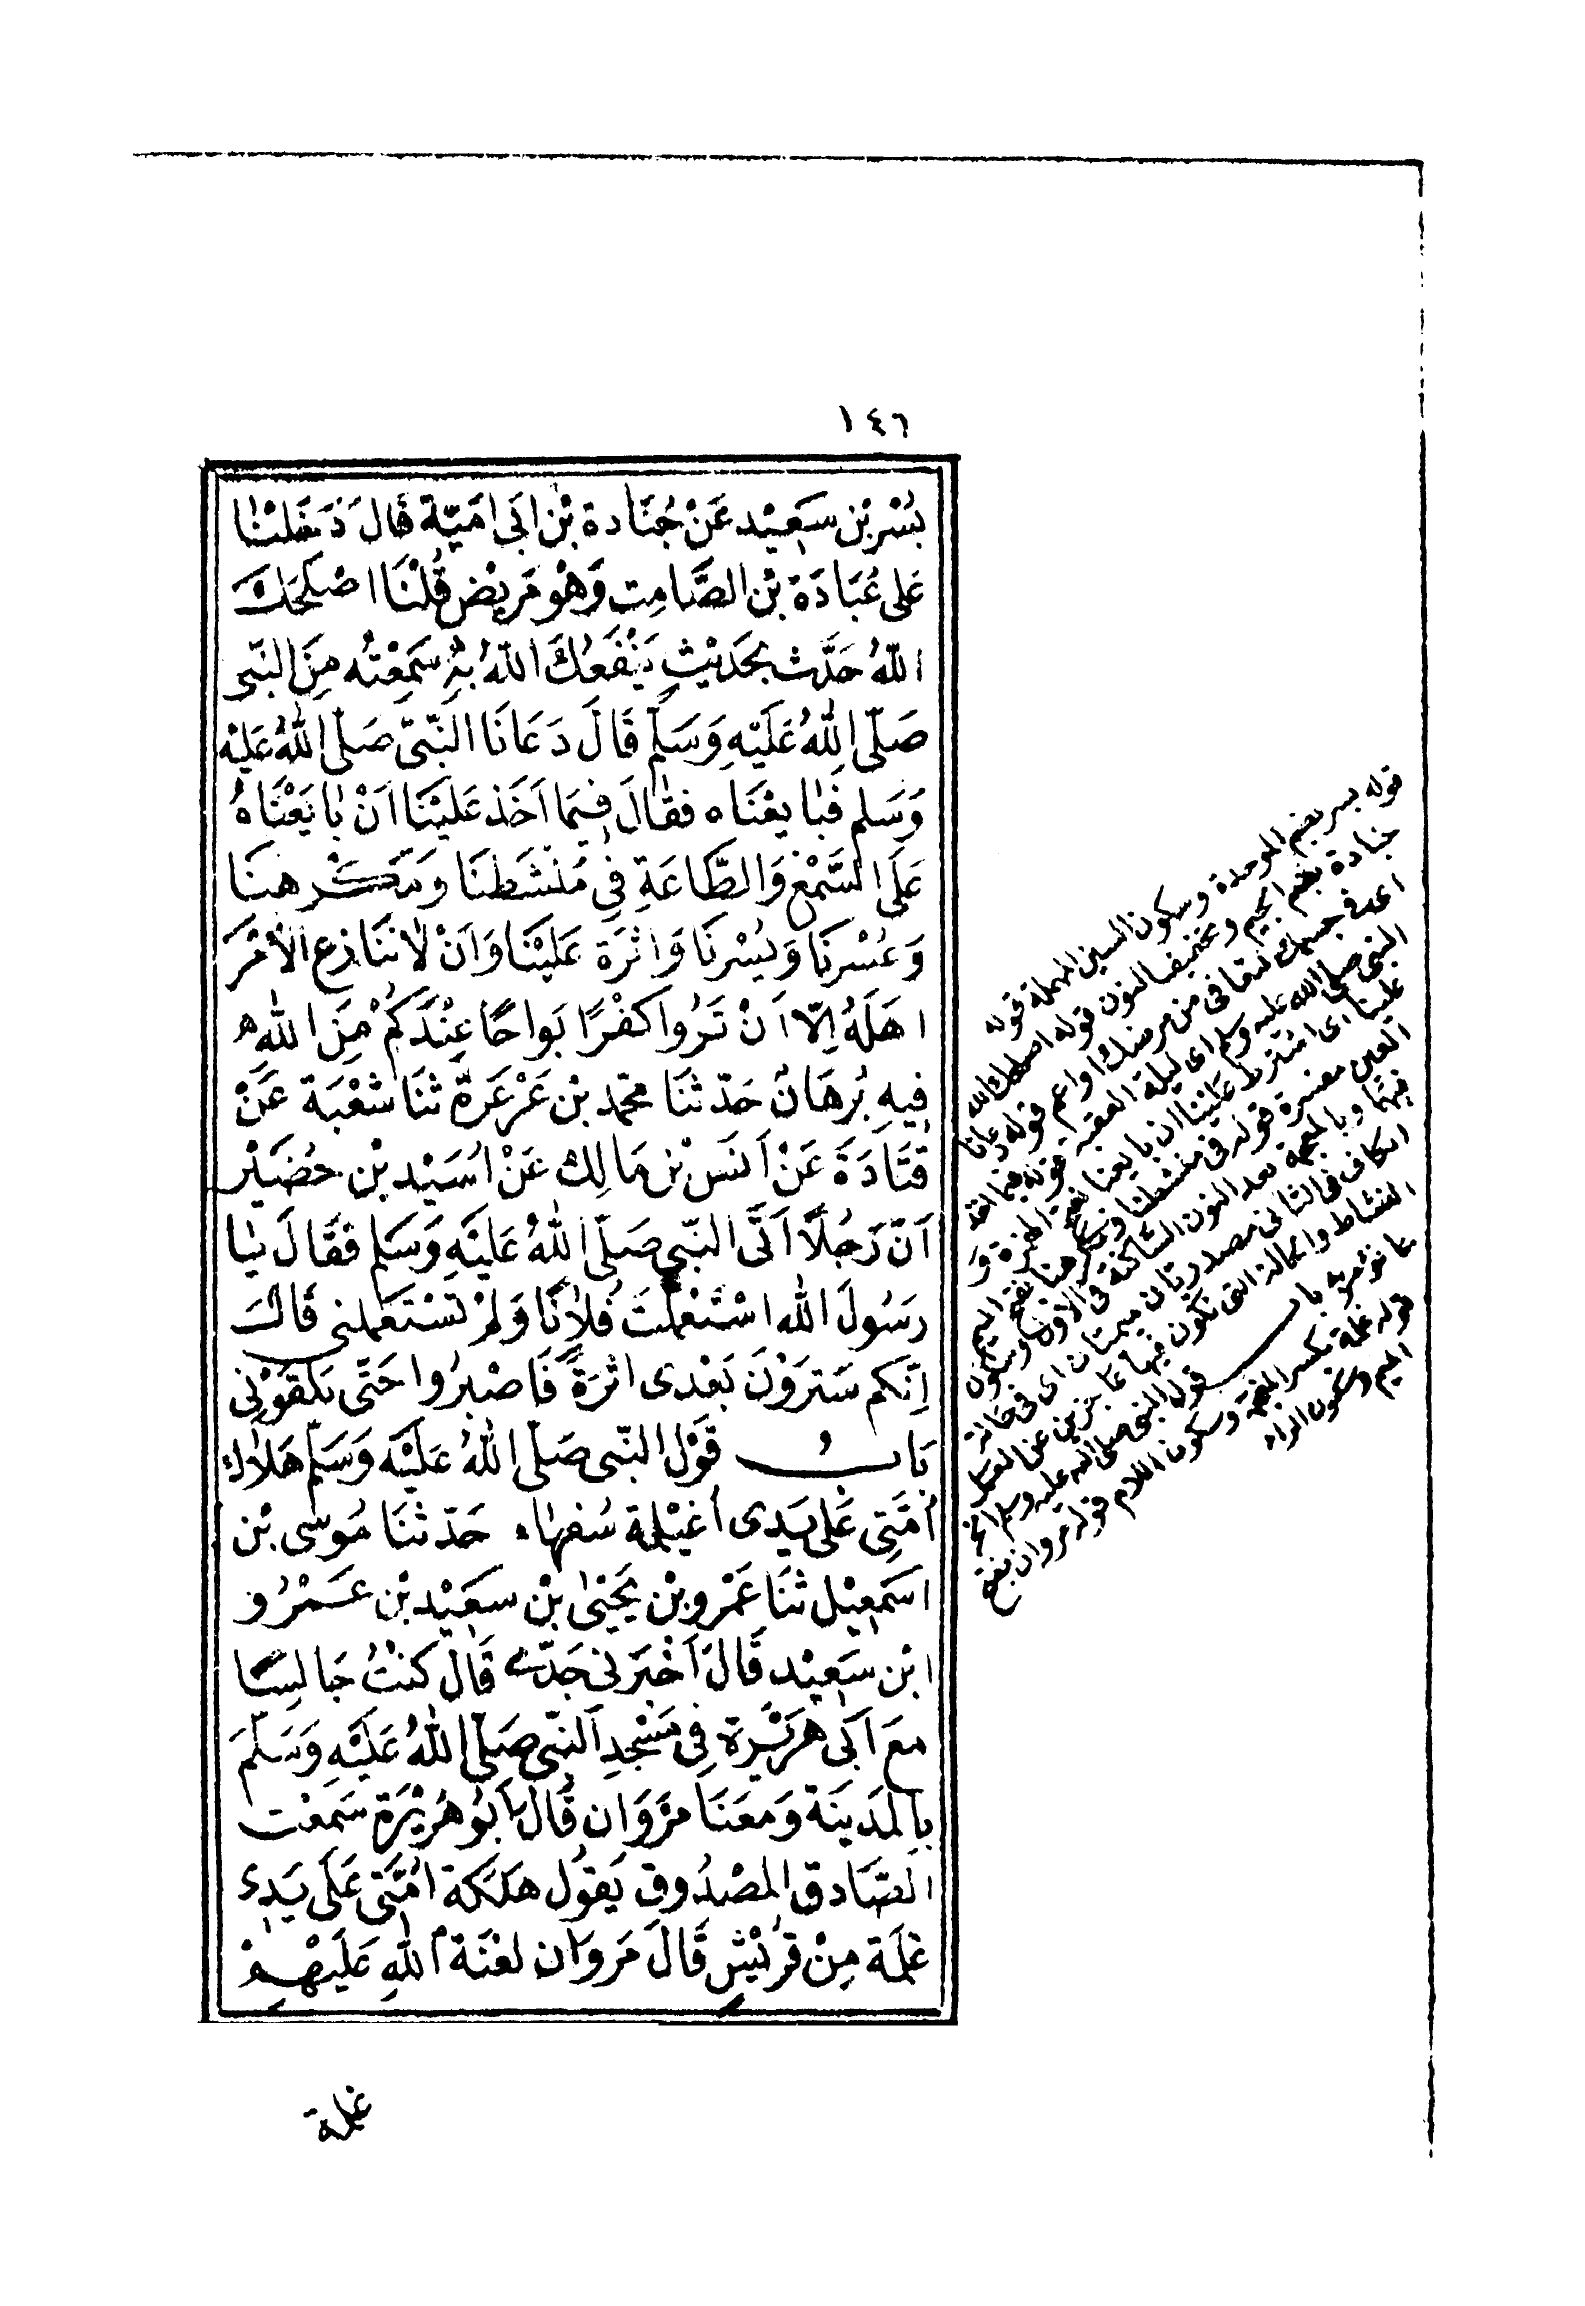 ١٤٦
بُسْرِ بْنِ سَعِيْدٍ عَنْ جُنَادة بْنِ اَبى اُمَيّة قَالَ دَخَلْنَا
عَلى عُبَادَة بْنِ الصَّامِتِ وَهْوَ مَرِيْض قُلْنَا اصْلَحَكَ
اللهُ حَدَّث بحَدِيْثٍ يَنْفَعُكَ اللهُ بِهِ سَمِعْتَهُ مِنَ النّبى
صَلّى اللهُ عَلَيْهِ وَسَلّم قَالَ دَعَانَا النّبِىّ صَلّى اللهُ عَلَيْه
وَسَلم فَبَايعْنَاه فقَالَ فِيمَا اَخَذ عَلَيْنَا اَنْ بَايَعْنَاهُ
عَلَى السَّمْعِ وَالطَّاعَةِ فِى مَنْشَطِنَا وَمَكْرهنَا
وَعُسْرِنَا وَيُسْرِنَا وَاَثَرَة عَلَيْنَا وَاَنْ لَا نُنَازِع الْاَمْرَ
اهَلَهُ اِلّا اَنْ تَرُوا كفْرًا بَواحًا عِنْدَكُمْ مِنَ اللهِ
فِيهِ بُرهَانٌ حَدّثنَا محمّد بْن عَرْعَرَة ثنَا شُعْبَة عَنْ
قتَادَةَ عَنْ اَنَسَ بْن مَالِك عَنْ اُسَيْد بْن حُضَيْر
اَنّ رَجُلًا اَتَى النّبِى صَلّى اللهُ عَلَيْهِ وَسَلم فقَالَ يَا
رَسُولَ الله اسْتَعْمَلتَ فُلَانًا وَلمْ تَسْتَعمِلنى قَالَ
اِنّكم سَتَرَوْنَ بَعْدى اثرَةً فَاصْبِرُوا حَتّى تلقَوْنِى
بَابُ قَوْل النّبى صَلّى اللهُ عَلَيْه وَسَلّم هَلَاك
اُمَّتِى عَلى يَدى اُغَيْلِمة سُفهَاء حَدّثنَا مُوسى بْن
اسَمعِيْل ثنَا عَمْرو بْن يَحْيٰى بْن سعَيْد بْن عَمْرو
ابْن سَعِيْد قَالَ اَخْبَرنى جَدّى قَالَ كنْتُ جَالسًا
معَ اَبى هريْرة فى مَسْجِدِ النّبى صَلّى اللهُ عَلَيْهِ وَسَلّمَ
بِالمَدِينَة وَمعَنَا مَرْوَان قَالَ اَبُو هُرَيْرَة سَمعْت
الصَّادق المصْدُوق يَقوُل هَلَكَة اُمَّتى عَلَى يَدى
غلمَة مِنْ قرَيْش قَالَ مَروَان لعْنَة اللهِ عَلَيْهِمْ
غلمة
قوله بسر بضم الموحدة وسكون السين المهملة قوله
جنادة بضم الجيم وتخفيف النون قوله اصلحك الله
اى فى جسمك لتعافى من مرضك او اعم قوله دعانا
النبى صلى الله عليه وسلم اى ليلة العقبة قوله فيما اخذ
علينا اى اشترط علينا ان بايعنا بفتح
العين مفسرة قوله فى منشطنا ومكرهنا بفتح الميم
فيهما وبالمعجمة بعد النون الساكنة فى الاول وسكون
الكاف فى الثانى مصدران ميميان اى فى حالة
النشاط والحالة التى نكون فيها عاجزين عن العمل
بما نؤمر به باب قول النبى صلى الله عليه وسلم الخ
قوله غلمة بكسر المعجمة وسكون اللام قوله مروان بفتح
الميم وسكون الراء